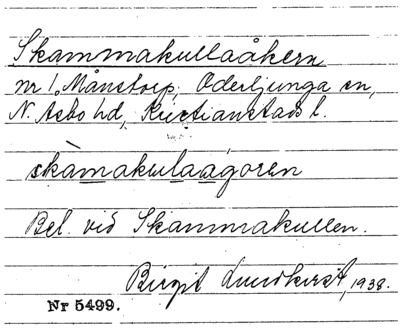 Skammakullaåkern
nr 1, Månstorp, Oderljunga sn,
N. Åsbo hd, Kristianstads l.
skàmakulaàgoren
Bel. vid Skammakullen.
Birgit Lundkvist, 1938.
Nr 5499.